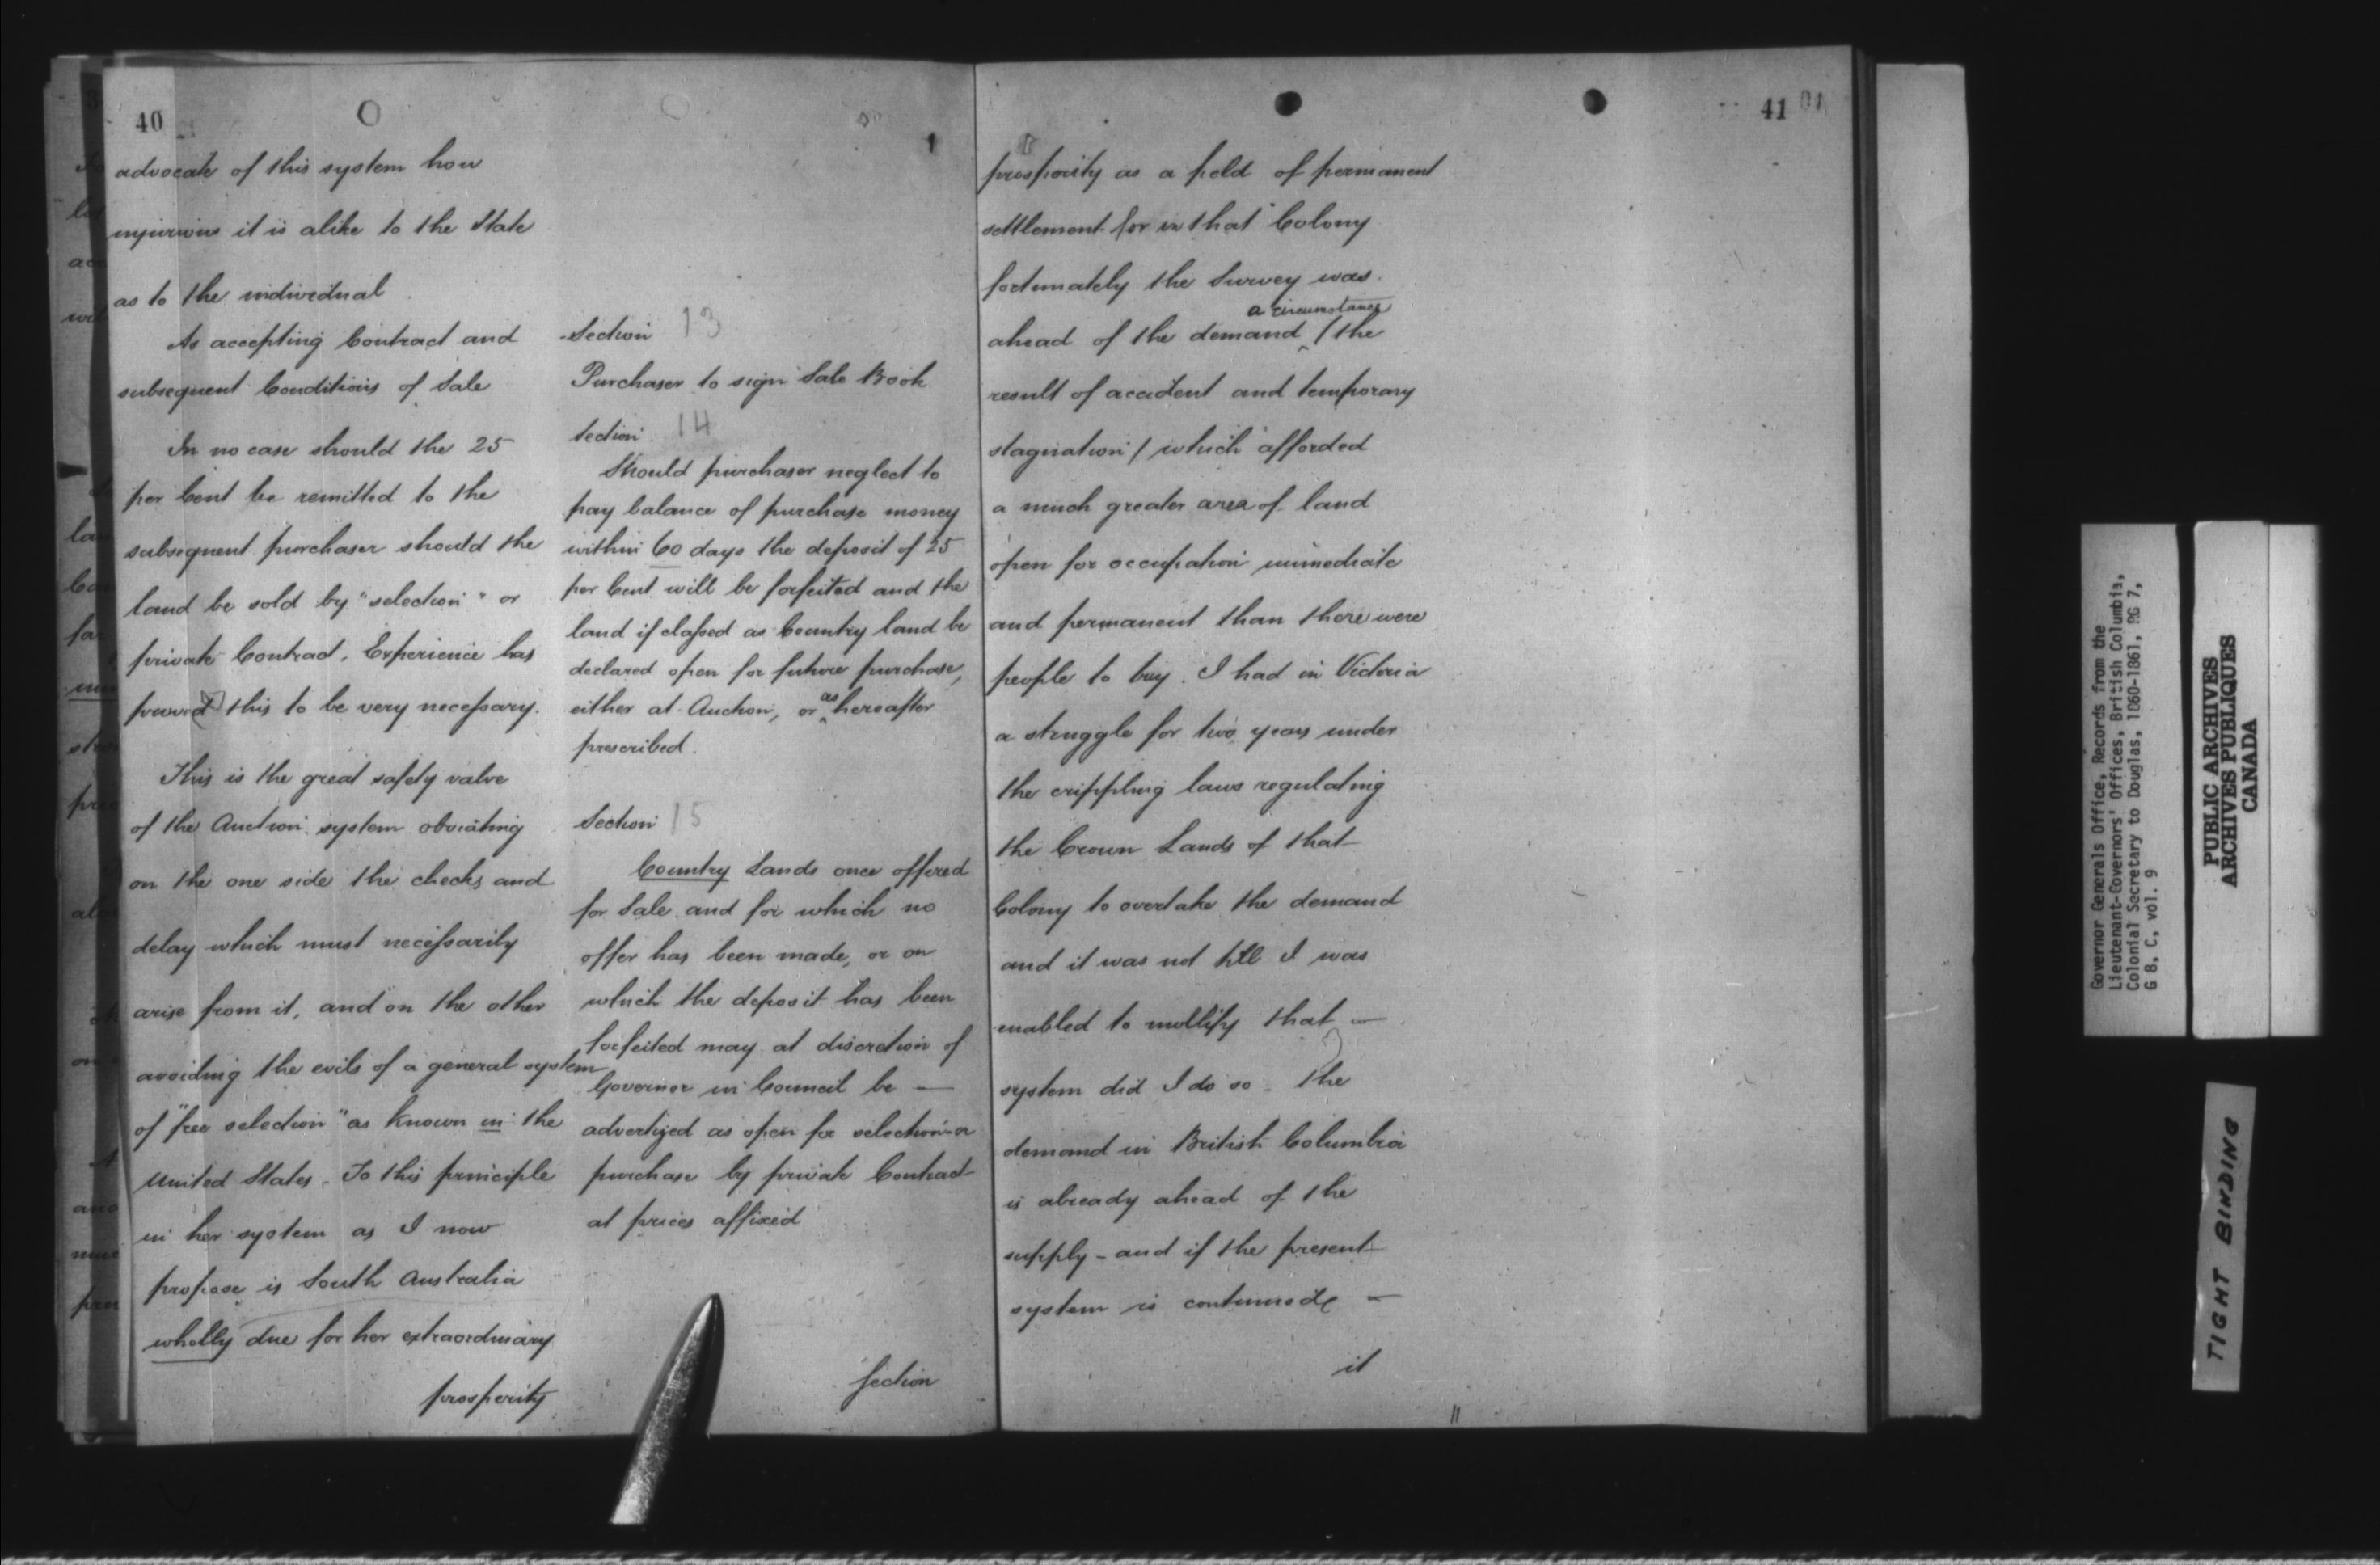 40
advocate of this system how
injurious it is alike to the State
as to the individual.
As accepting Contract and
subsequent Conditions of Sale
In no case should the 25
per Cent be remitted to the
subsequent purchaser should the
land be sold by "selection" or
private Contract. Experience has
proved this to be very necessary.
This is the great safety valve
of the Auction system obviating
on the one side the checks and
delay which must necessarily
arise from it, and on the other
avoiding the evils of a general system
of "free selection" as known in the
United States. To this principle
in her system as I now
propose is South Australia
wholly due for her extraordinary
prosperity
Section 13
Purchaser to sign Sale Book
Section 14
Should purchaser neglect to
pay balance of purchase money
within 60 days the deposit of 25
per Cent will be forfeited and the
land if classed as Country land be
declared open for future purchase,
either at Auction, or as hereafter
prescribed.
Section 15
Country Lands once offered
for Sale and for which no
offer has been made, or on
which the deposit has been
forfeited may at discretion of
Governor in Council be —
advertized as open for selection or
purchase by private Contract
at prices affixed
Section
41
prosperity as a field of permanent
settlement for in that Colony
fortunately the Survey was
a circumstance
ahead of the demand ^ / the
result of accident and temporary
stagnation / which afforded
a much greater area of land
open for occupation immediate
and permanent than there were
people to buy. I had in Victoria
a struggle for two years under
the crippling laws regulating
the Crown Lands of that
Colony to overtake the demand
and it was not till I was
enabled to mollify that —
system did I do so. The
demand in British Columbia
is already ahead of the
supply - and if the present
system is continued —
it
Governor Generals Office, Records from the
Lieutenant-Governors' Offices, British Columbia,
Colonial Secretary to Douglas, 1860-1861, RG 7,
G 8, C, vol. 9
PUBLIC ARCHIVES
ARCHIVES PUBLIQUES
CANADA
TIGHT BINDING